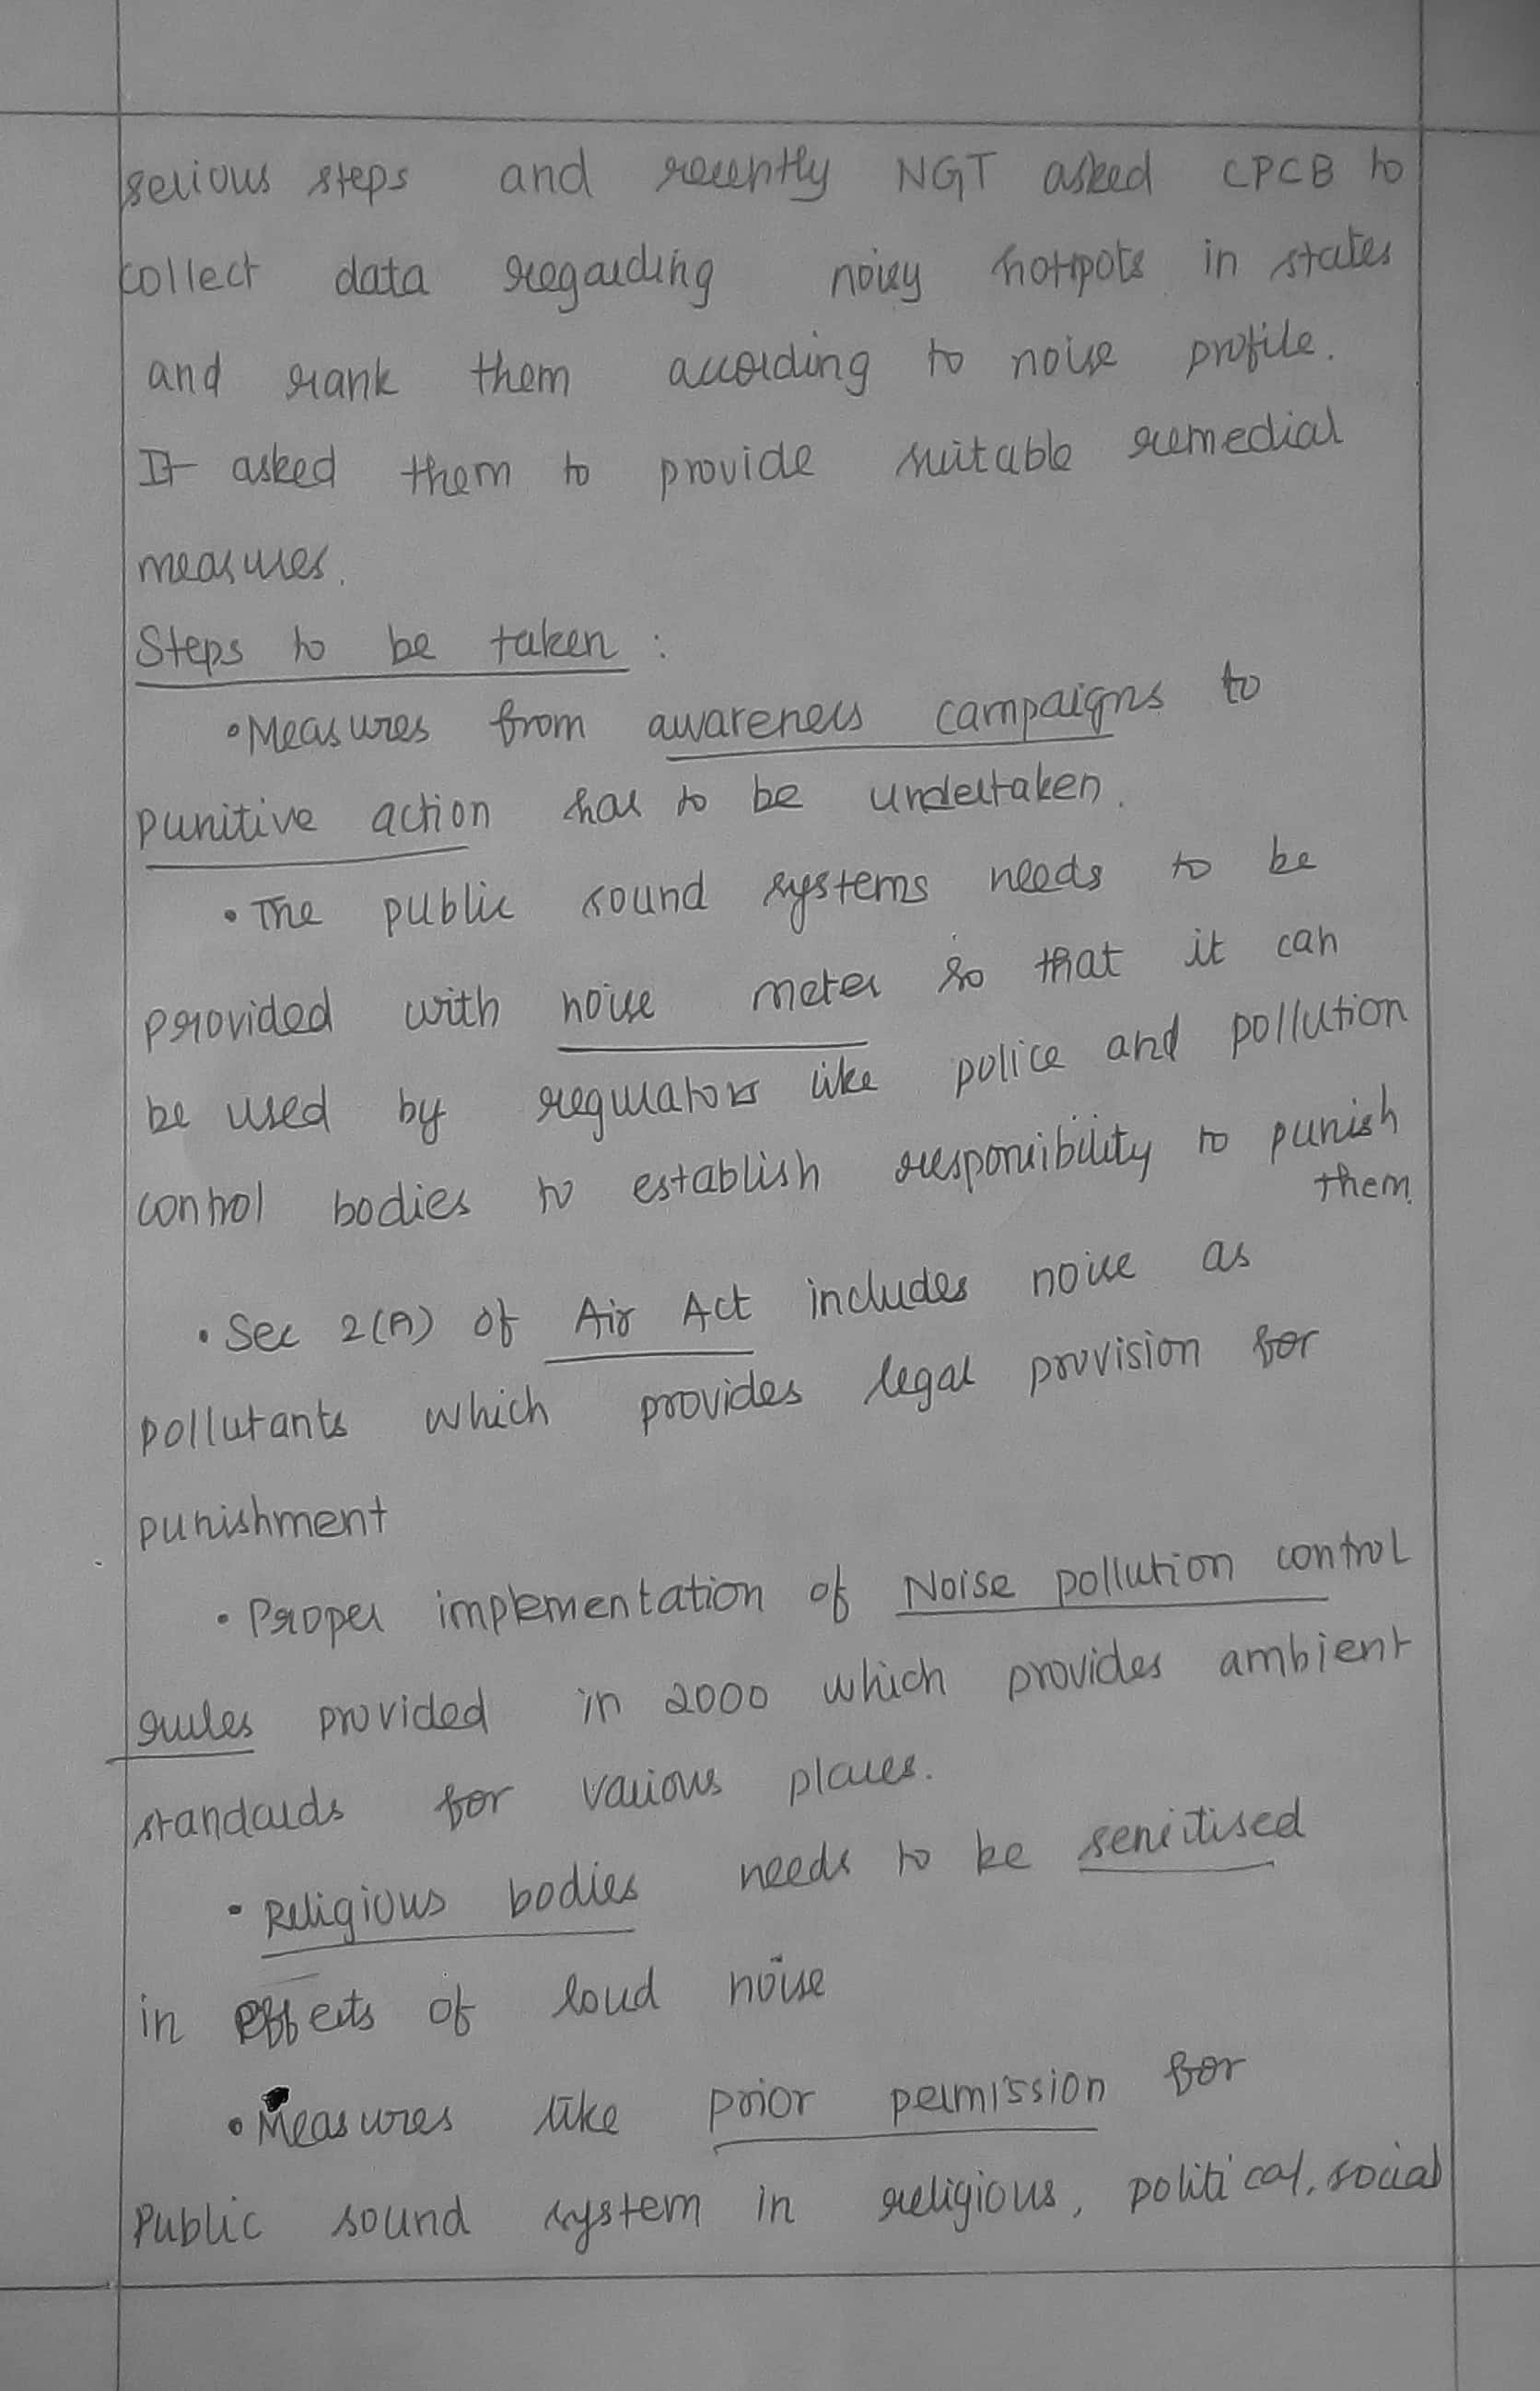 serious steps and recently NGT asked CPCB to
collect data regarding noisy hotspots in states
and rank them according to noise profile.
It asked them to provide suitable remedial
measures.
Steps to be taken :
• Measures from awareness campaigns to
punitive action has to be undertaken.
• The public sound systems needs to be
provided with noise meter so that it can
be used by regulators like police and pollution
control bodies to establish responsibility to punish
them.
• Sec 2(A) of Air Act includes noise as
pollutants which provides legal provision for
punishment
• Proper implementation of Noise pollution control
rules provided in 2000 which provides ambient
standards for various places.
• Religious bodies needs to be sensitised
in effects of loud noise
• Measures like prior permission for
Public sound system in religious, political, social